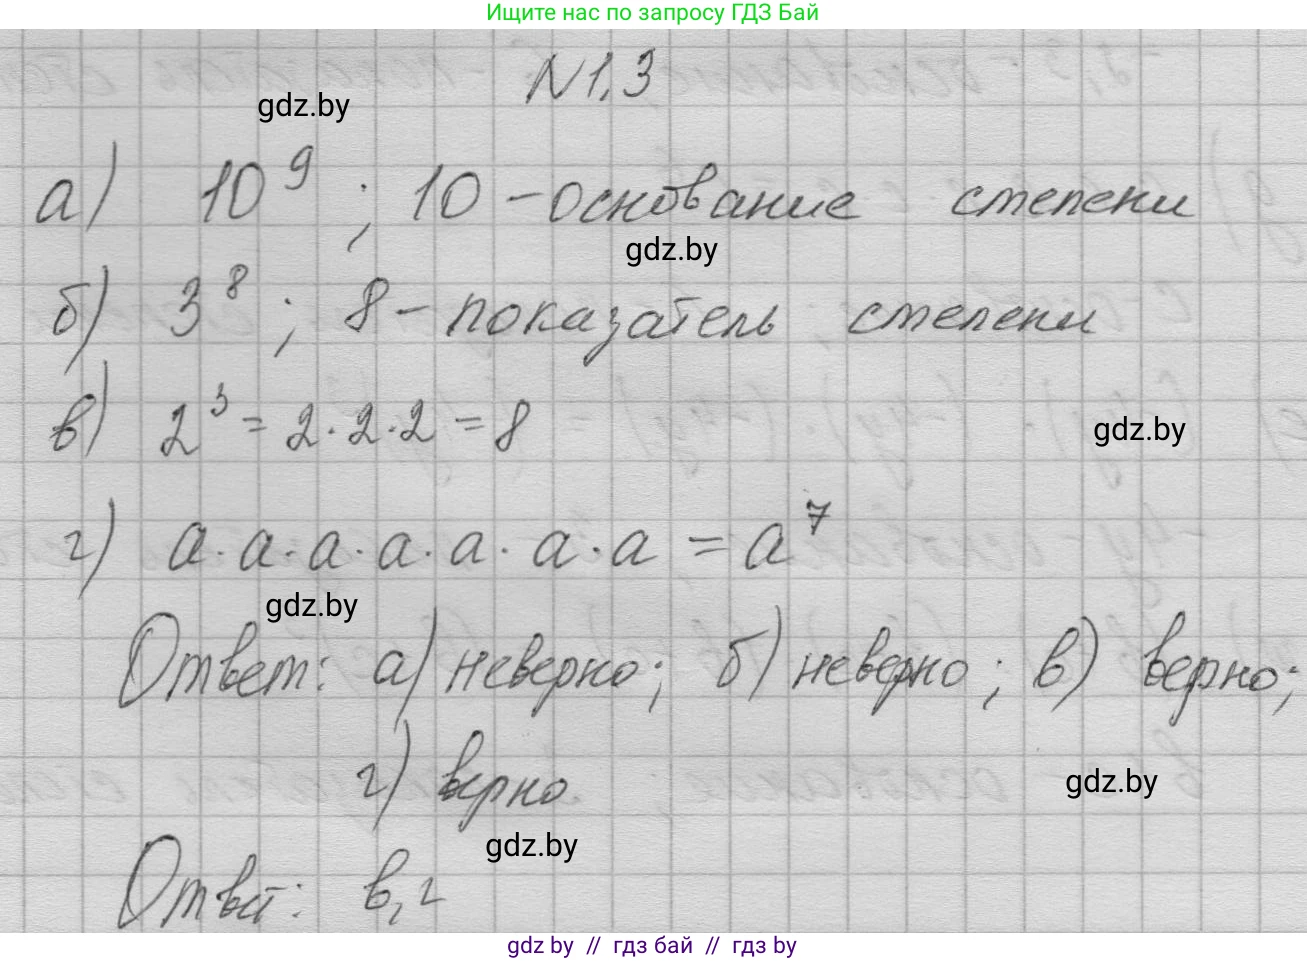 Ищите нас по запросу ГДЗ Бай
N1,3
gdz.by
а) 10⁹ ; 10 – основание степени
gdz.by
б) 3⁸ ; 8 – показатель степени
в) 2³ = 2·2·2 = 8
gdz.by
г) a·a·a·a·a·a·a = a⁷
gdz.by
Ответ: а) неверно; б) неверно; в) верно;
г) верно
gdz.by
gdz.by
Ответ: в, г
gdz by // гдз бай // гдз by